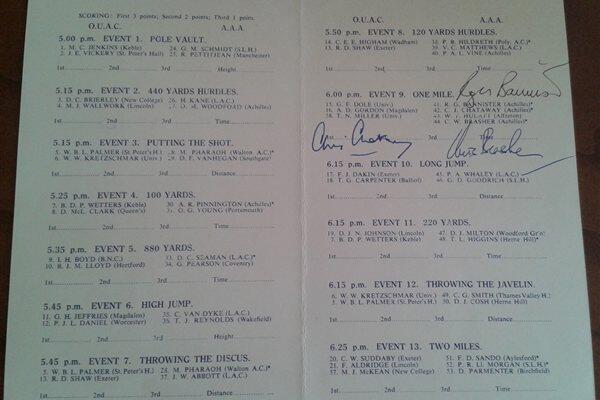 SCORING: First 3 points; Second 2 points; Third 1 point.
O.U.A.C. A.A.A.
5.00 p.m. EVENT 1. POLE VAULT.
1. M. C. JENKINS (Keble) 24. G. M. SCHMIDT (S.L.H.)
2. J. E. VICKERY (St. Peter's Hall) 25. R. PETITJEAN (Manchester)
1st 2nd 3rd Height
5.15 p.m. EVENT 2. 440 YARDS HURDLES.
3. D. C. BRIERLEY (New College) 26. H. KANE (L.A.C.)
4. M. J. WALLWORK (Lincoln) WOODFORD (Achilles)
1st 2nd 3rd Time
5.15 p.m. EVENT 3. PUTTING THE SHOT.
5. W. B. L. PALMER (St. Peter's H.) M. PHARAOH (Walton A.C.)*
6. W. W. KRETZSCHMAR (Univ.) 29. D. F. VANHEGAN (Southgate)
1st 2nd 3rd Distance
5.25 p.m. EVENT 4. 100 YARDS.
7. B. D. P. WETTERS (Keble) 30. A. R. PINNINGTON (Achilles)*
8. D. McL. CLARK (Queen's) O. G. YOUNG (Portsmouth)
1st 2nd 3rd Time
5.35 p.m. EVENT 5. 880 YARDS.
9. I. H. BOYD (B.N.C.) 33. D. C. SEAMAN (L.A.C.)*
10. R. J. M. LLOYD (Hertford) 34. G. PEARSON (Coventry)
1st 2nd 3rd Time
5.45 p.m. EVENT 6. HIGH JUMP.
11. G. H. JEFFRIES (Magdalen) 35. C. VAN DYKE (L.A.C.)
12. P. J. L. DANIEL (Worcester) T. J. REYNOLDS (Wakefield)
1st 2nd 3rd Height
5.45 p.m. EVENT 7. THROWING THE DISCUS.
5. W. B. L. PALMER (St. Peter's H.) 28. M. PHARAOH (Walton A.C.)*
13. R. D. SHAW (Exeter) 37. J. W. ABBOTT (L.A.C.)
1st 2nd 3rd Distance
O.U.A.C. A.A.A.
5.50 p.m. EVENT 8. 120 YARDS HURDLES.
14. C. E. E. HIGHAM (Wadham) 38. P. B. HILDRETH (Poly. A.C.)*
13. R. D. SHAW (Exeter) 39. V. C. MATTHEWS (L.A.C.)
40. P. A. L. VINE (Achilles)
1st 2nd 3rd Time
6.00 p.m. EVENT 9. ONE MILE.
Roger Bannister
15. G. F. DOLE (Univ.) 41. R. G. BANNISTER (Achilles)*
16. A. D. GORDON (Magdalen) 42. C. J. CHATAWAY (Achilles)*
T. N. MILLER (Univ.) 43. W. T. HULATT (Alfreton)
44. C. W. BRASHER (Achilles)*
1st 2nd 3rd Time
Chris Chataway
Chris Brasher
6.15 p.m. EVENT 10. LONG JUMP.
17. F. J. DAKIN (Exeter) 45. P. A. WHALEY (L.A.C.)*
18. T. G. CARPENTER (Balliol) 46. G. D. GOODRICH (S.L.H.)
1st 2nd 3rd Distance
6.15 p.m. EVENT 11. 220 YARDS.
19. D. J. N. JOHNSON (Lincoln) 47. D. J. MILTON (Woodford Gr'n)
7. B. D. P. WETTERS (Keble) 48. T. L. HIGGINS (Herne Hill)*
1st 2nd 3rd Time
6.15 p.m. EVENT 12. THROWING THE JAVELIN.
6. W. W. KRETZSCHMAR (Univ.) 49. C. G. SMITH (Thames Valley H.)
5. W. B. L. PALMER (St. Peter's H.) 50. D. J. COSH (Herne Hill)
1st 2nd 3rd Distance
6.25 p.m. EVENT 13. TWO MILES.
20. C. W. SUDDABY (Exeter) 51. F. D. SANDO (Aylesford)*
21. F. ALDRIDGE (Lincoln) 52. P. R. Ll. MORGAN (S.L.H.)*
57. M. J. McKEAN (New College) 53. D. PARMENTER (Birchfield)
1st 2nd 3rd Time